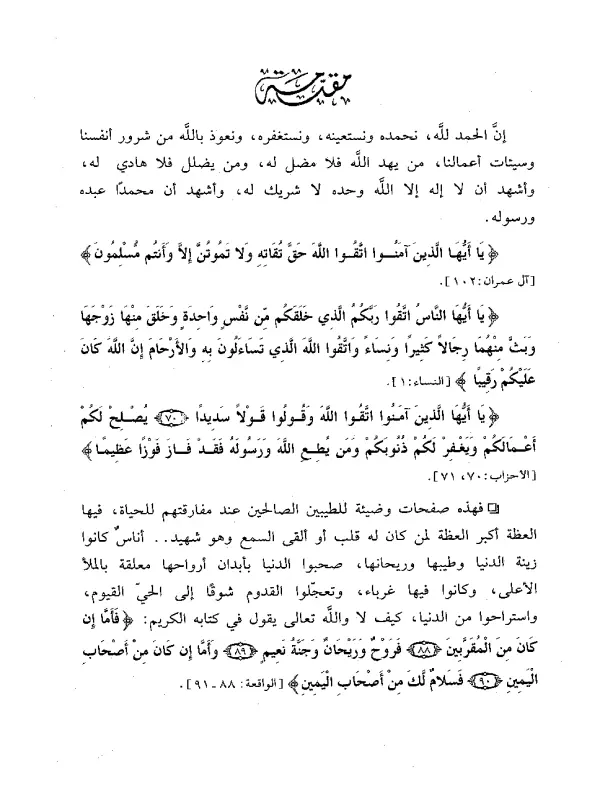 مقدمة
إنَّ الحمد للَّه، نحمده ونستعينه، ونستغفره، ونعوذ باللَّه من شرور أنفسنا
وسيئات أعمالنا، من يهد اللَّه فلا مضل له، ومن يضلل فلا هادي له،
وأشهد أن لا إله إلا اللَّه وحده لا شريك له، وأشهد أن محمدًا عبده
ورسوله.
﴿ يَا أَيُّهَا الَّذِينَ آمَنُوا اتَّقُوا اللَّهَ حَقَّ تُقَاتِهِ وَلا تَمُوتُنَّ إِلاَّ وَأَنتُم مُّسْلِمُونَ ﴾
[آل عمران: ١٠٢].
﴿ يَا أَيُّهَا النَّاسُ اتَّقُوا رَبَّكُمُ الَّذِي خَلَقَكُم مِّن نَّفْسٍ وَاحِدَةٍ وَخَلَقَ مِنْهَا زَوْجَهَا
وَبَثَّ مِنْهُمَا رِجَالاً كَثِيرًا وَنِسَاءً وَاتَّقُوا اللَّهَ الَّذِي تَسَاءَلُونَ بِهِ وَالأَرْحَامَ إِنَّ اللَّهَ كَانَ
عَلَيْكُمْ رَقِيبًا ﴾ [النساء: ١].
﴿ يَا أَيُّهَا الَّذِينَ آمَنُوا اتَّقُوا اللَّهَ وَقُولُوا قَوْلاً سَدِيدًا ﴿٧٠﴾ يُصْلِحْ لَكُمْ
أَعْمَالَكُمْ وَيَغْفِرْ لَكُمْ ذُنُوبَكُمْ وَمَن يُطِعِ اللَّهَ وَرَسُولَهُ فَقَدْ فَازَ فَوْزًا عَظِيمًا ﴾
[الأحزاب: ٧٠، ٧١].
❏ فهذه صفحات وضيئة للطيبين الصالحين عند مفارقتهم للحياة، فيها
العظة أكبر العظة لمن كان له قلب أو ألقى السمع وهو شهيد.. أناسٌ كانوا
زينة الدنيا وطيبها وريحانها، صحبوا الدنيا بأبدان أرواحها معلقة بالملأ
الأعلى، وكانوا فيها غرباء، وتعجّلوا القدوم شوقًا إلى الحيّ القيوم،
واستراحوا من الدنيا، كيف لا واللَّه تعالى يقول في كتابه الكريم: ﴿ فَأَمَّا إِن
كَانَ مِنَ الْمُقَرَّبِينَ ﴿٨٨﴾ فَرَوْحٌ وَرَيْحَانٌ وَجَنَّةُ نَعِيمٍ ﴿٨٩﴾ وَأَمَّا إِن كَانَ مِنْ أَصْحَابِ
الْيَمِينِ ﴿٩٠﴾ فَسَلامٌ لَّكَ مِنْ أَصْحَابِ الْيَمِينِ ﴾ [الواقعة: ٨٨ـ ٩١].